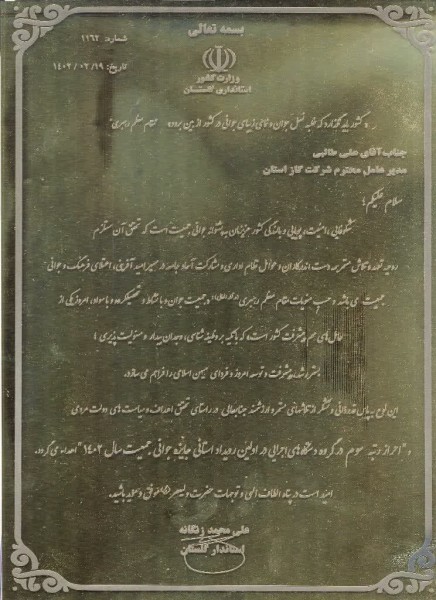 بسمه تعالی
شماره: ۱۱۶۲
تاریخ: ۱۴۰۳/۰۲/۱۹
وزارت کشور
استانداری گلستان
کشور باید نگذارد که غلبه نسل جوان و نمای زیبای جوانی در کشور از بین برود» مقام معظم رهبری
جناب آقای علی طالبی
مدیر عامل محترم شرکت گاز استان
سلام علیکم؛
شکوفایی، امنیت، پویایی و بالندگی کشور عزیزمان به پشتوانه جوانی جمعیت است که تحقق آن مستلزم
روحیه تعهد و تلاش مستمر همه دست اندرکاران و عوامل نظام اداری و مشارکت آحاد جامعه در مسیر امید آفرینی، اعتلای فرهنگ و جوانی
جمعیت می باشد و حسب منویات مقام معظم رهبری جمعیت جوان و با نشاط و تحصیلکرده و با سواد، امروز یکی از
عامل های مهم پیشرفت کشور است که با تکیه بر وظیفه شناسی، وجدان بیدار و مسئولیت پذیری
بستر رشد، پیشرفت و توسعه امروز و فردای میهن اسلامی را فراهم می سازد.
این لوح به پاس قدردانی و تشکر از تلاشهای مستمر و ارزشمند جنابعالی در راستای تحقق اهداف و سیاست های دولت مردمی
و "احراز رتبه سوم در گروه دستگاههای اجرایی در اولین رویداد استانی جایزه جوانی جمعیت سال ۱۴۰۲" اهداء می گردد.
امید است در پناه الطاف الهی و توجهات حضرت ولیعصر (عج) موفق و موید باشید.
علی محمد زنگانه
استاندار گلستان